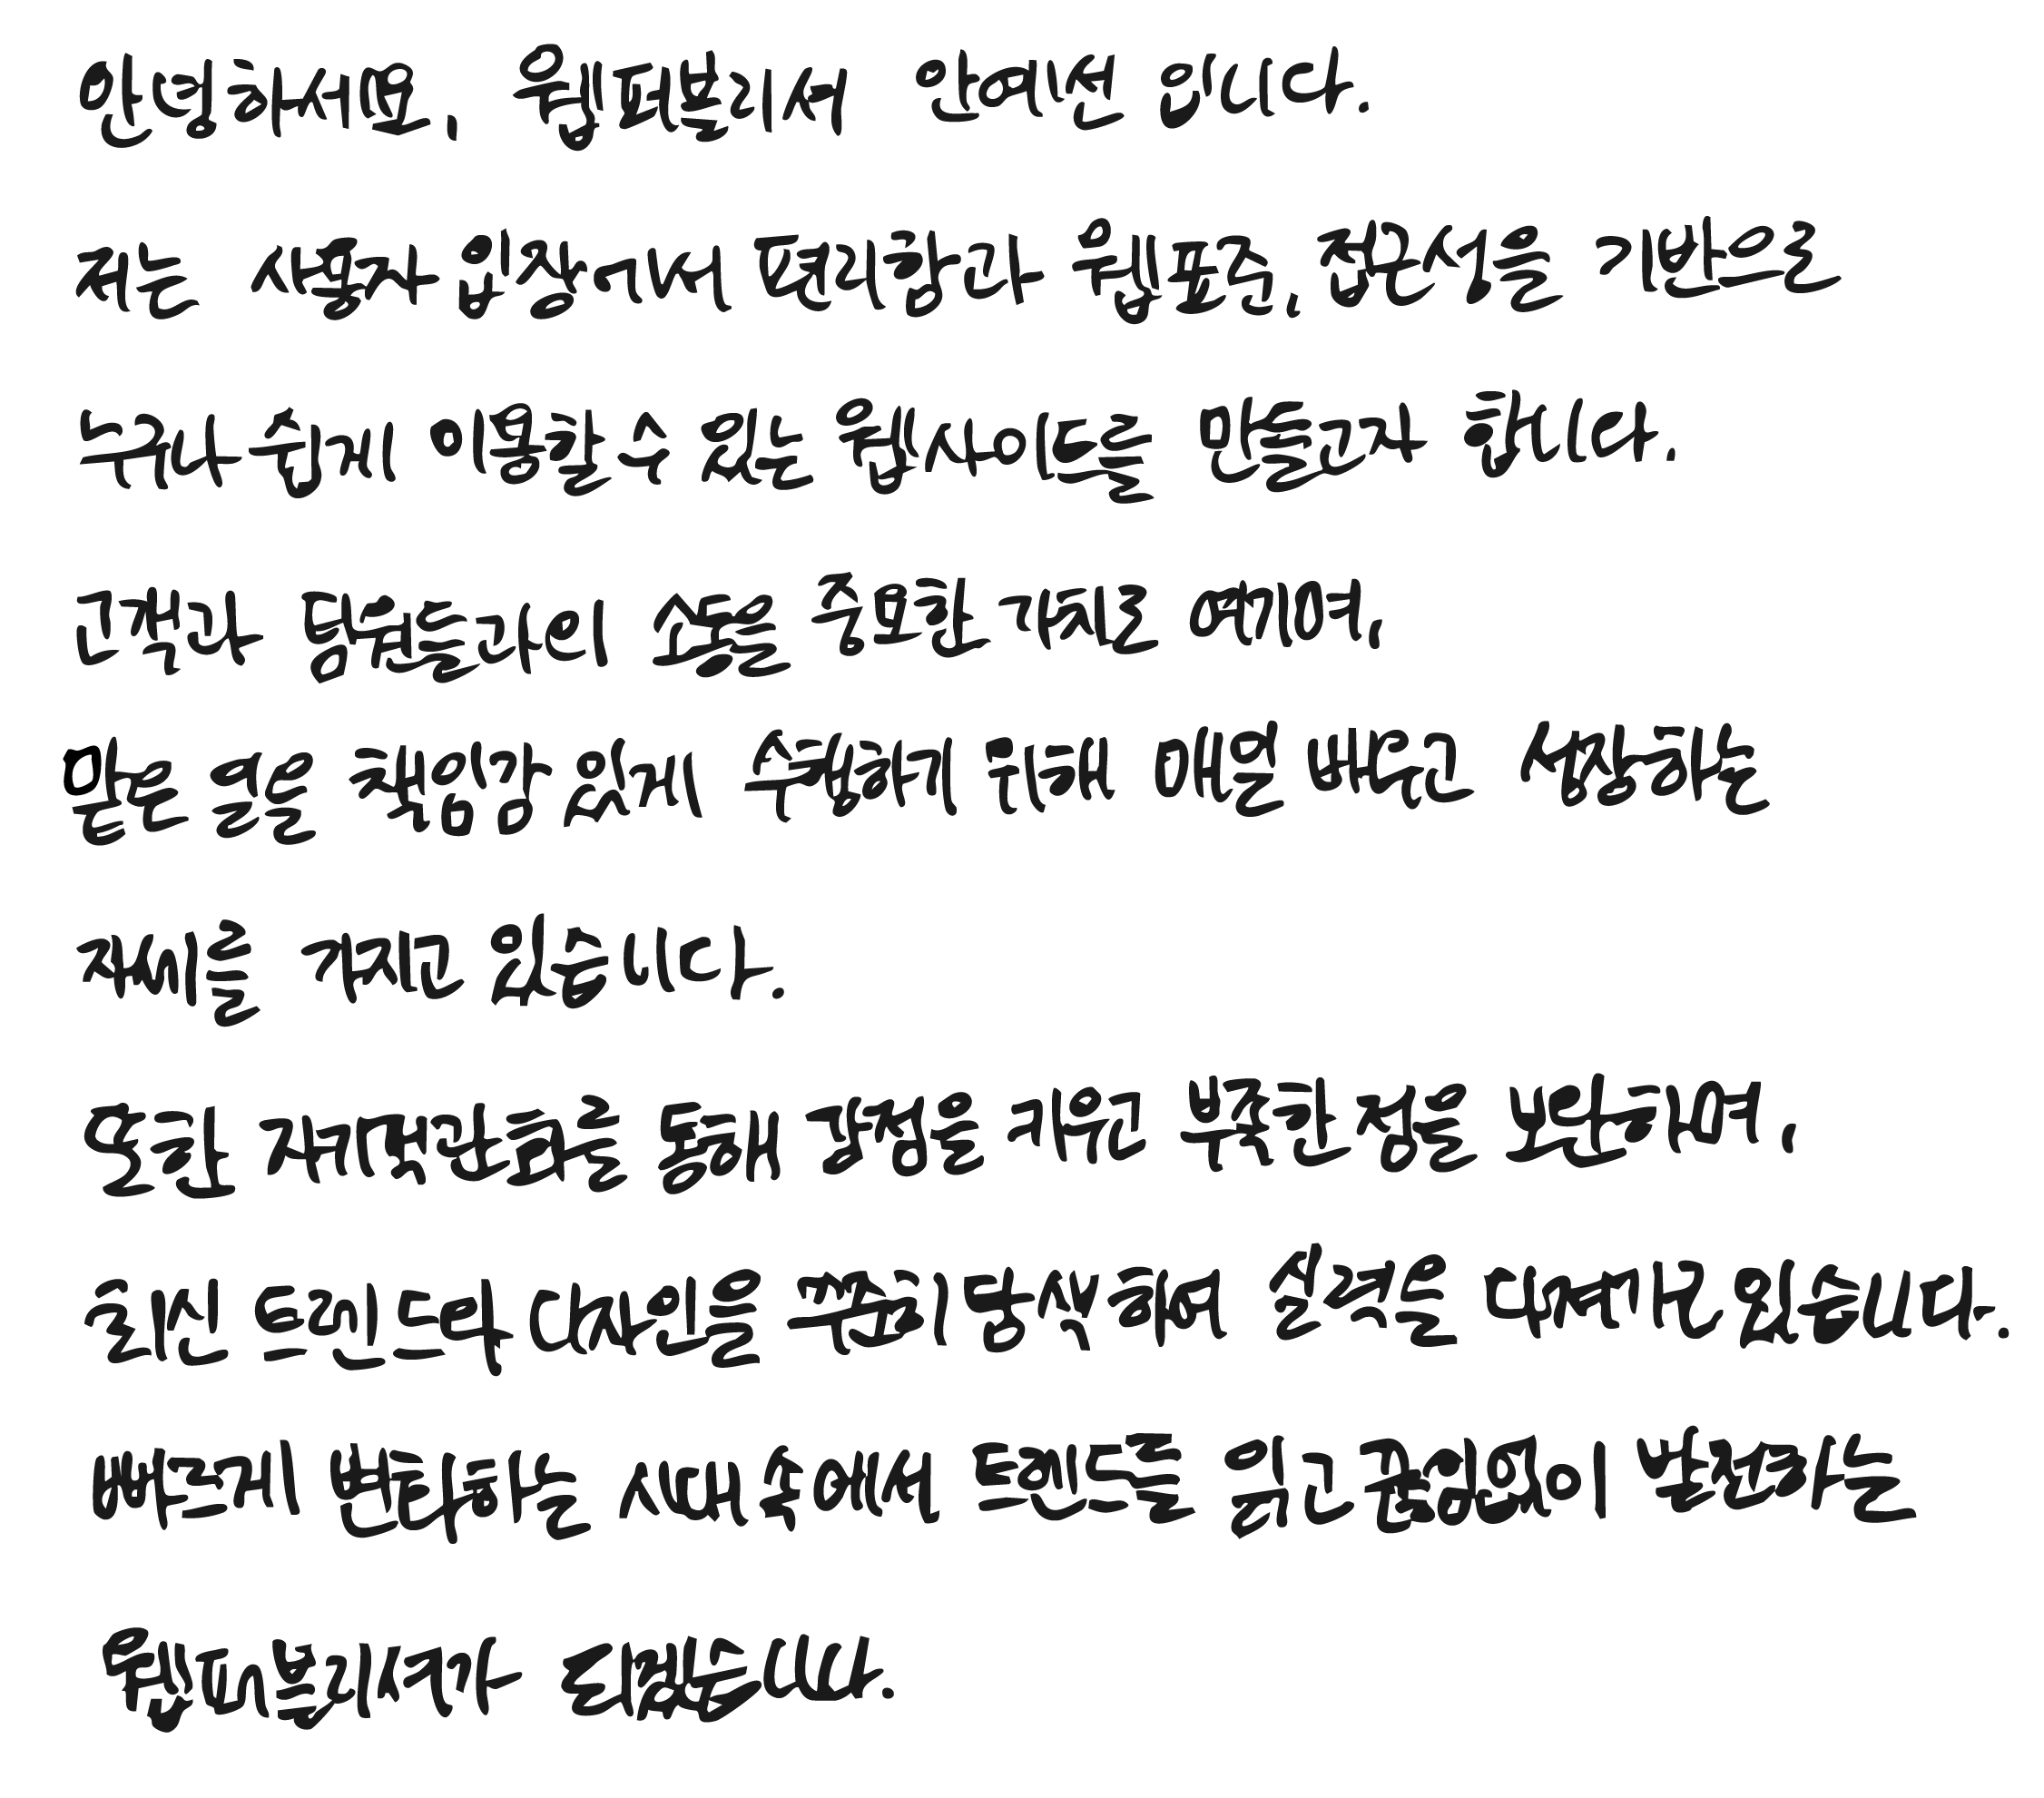 안녕하세요, 웹퍼블리셔 안예선 입니다.
저는 사용자 입장에서 편리함과 웹표준, 접근성을 기반으로
누구나 쉽게 이용할 수 있는 웹사이트를 만들고자 합니다.
고객과 팀원들과의 소통을 중요한 가치로 여기며,
맡은 일을 책임감 있게 수행하기 위해 매일 배우고 성장하는
자세를 가지고 있습니다.
또한 자기객관화를 통해 강점을 키우고 부족한 점을 보완하며,
최신 트렌드와 디자인을 꾸준히 탐색하여 실력을 다져가고 있습니다.
빠르게 변화하는 시대 속에서 트렌드를 읽고 끊임없이 발전하는
웹퍼블리셔가 되겠습니다.